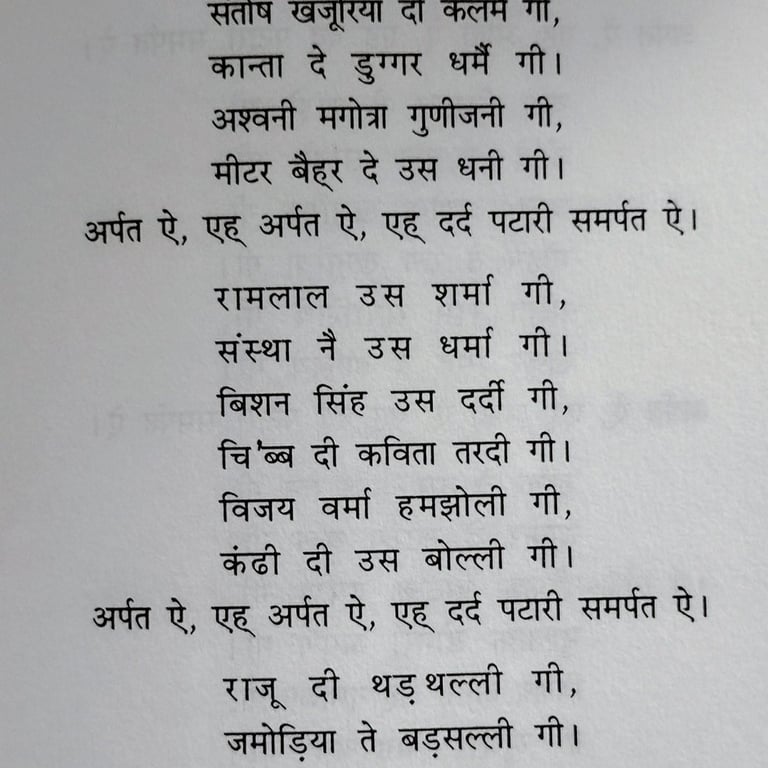 संतोष खजूरिया दी कलम गी,
कान्ता दे डुग्गर धर्मै गी।
अश्वनी मगोत्रा गुणीजनी गी,
मीटर बैह्‌र दे उस धनी गी।
अर्पत ऐ, एह् अर्पत ऐ, एह् दर्द पटारी समर्पत ऐ।
रामलाल उस शर्मा गी,
संस्था नै उस धर्मा गी।
बिशन सिंह उस दर्दी गी,
चि'ब्ब दी कविता तरदी गी।
विजय वर्मा हमझोली गी,
कंढी दी उस बोल्ली गी।
अर्पत ऐ, एह् अर्पत ऐ, एह् दर्द पटारी समर्पत ऐ।
राजू दी थड़थल्ली गी,
जमोड़िया ते बड़सल्ली गी।